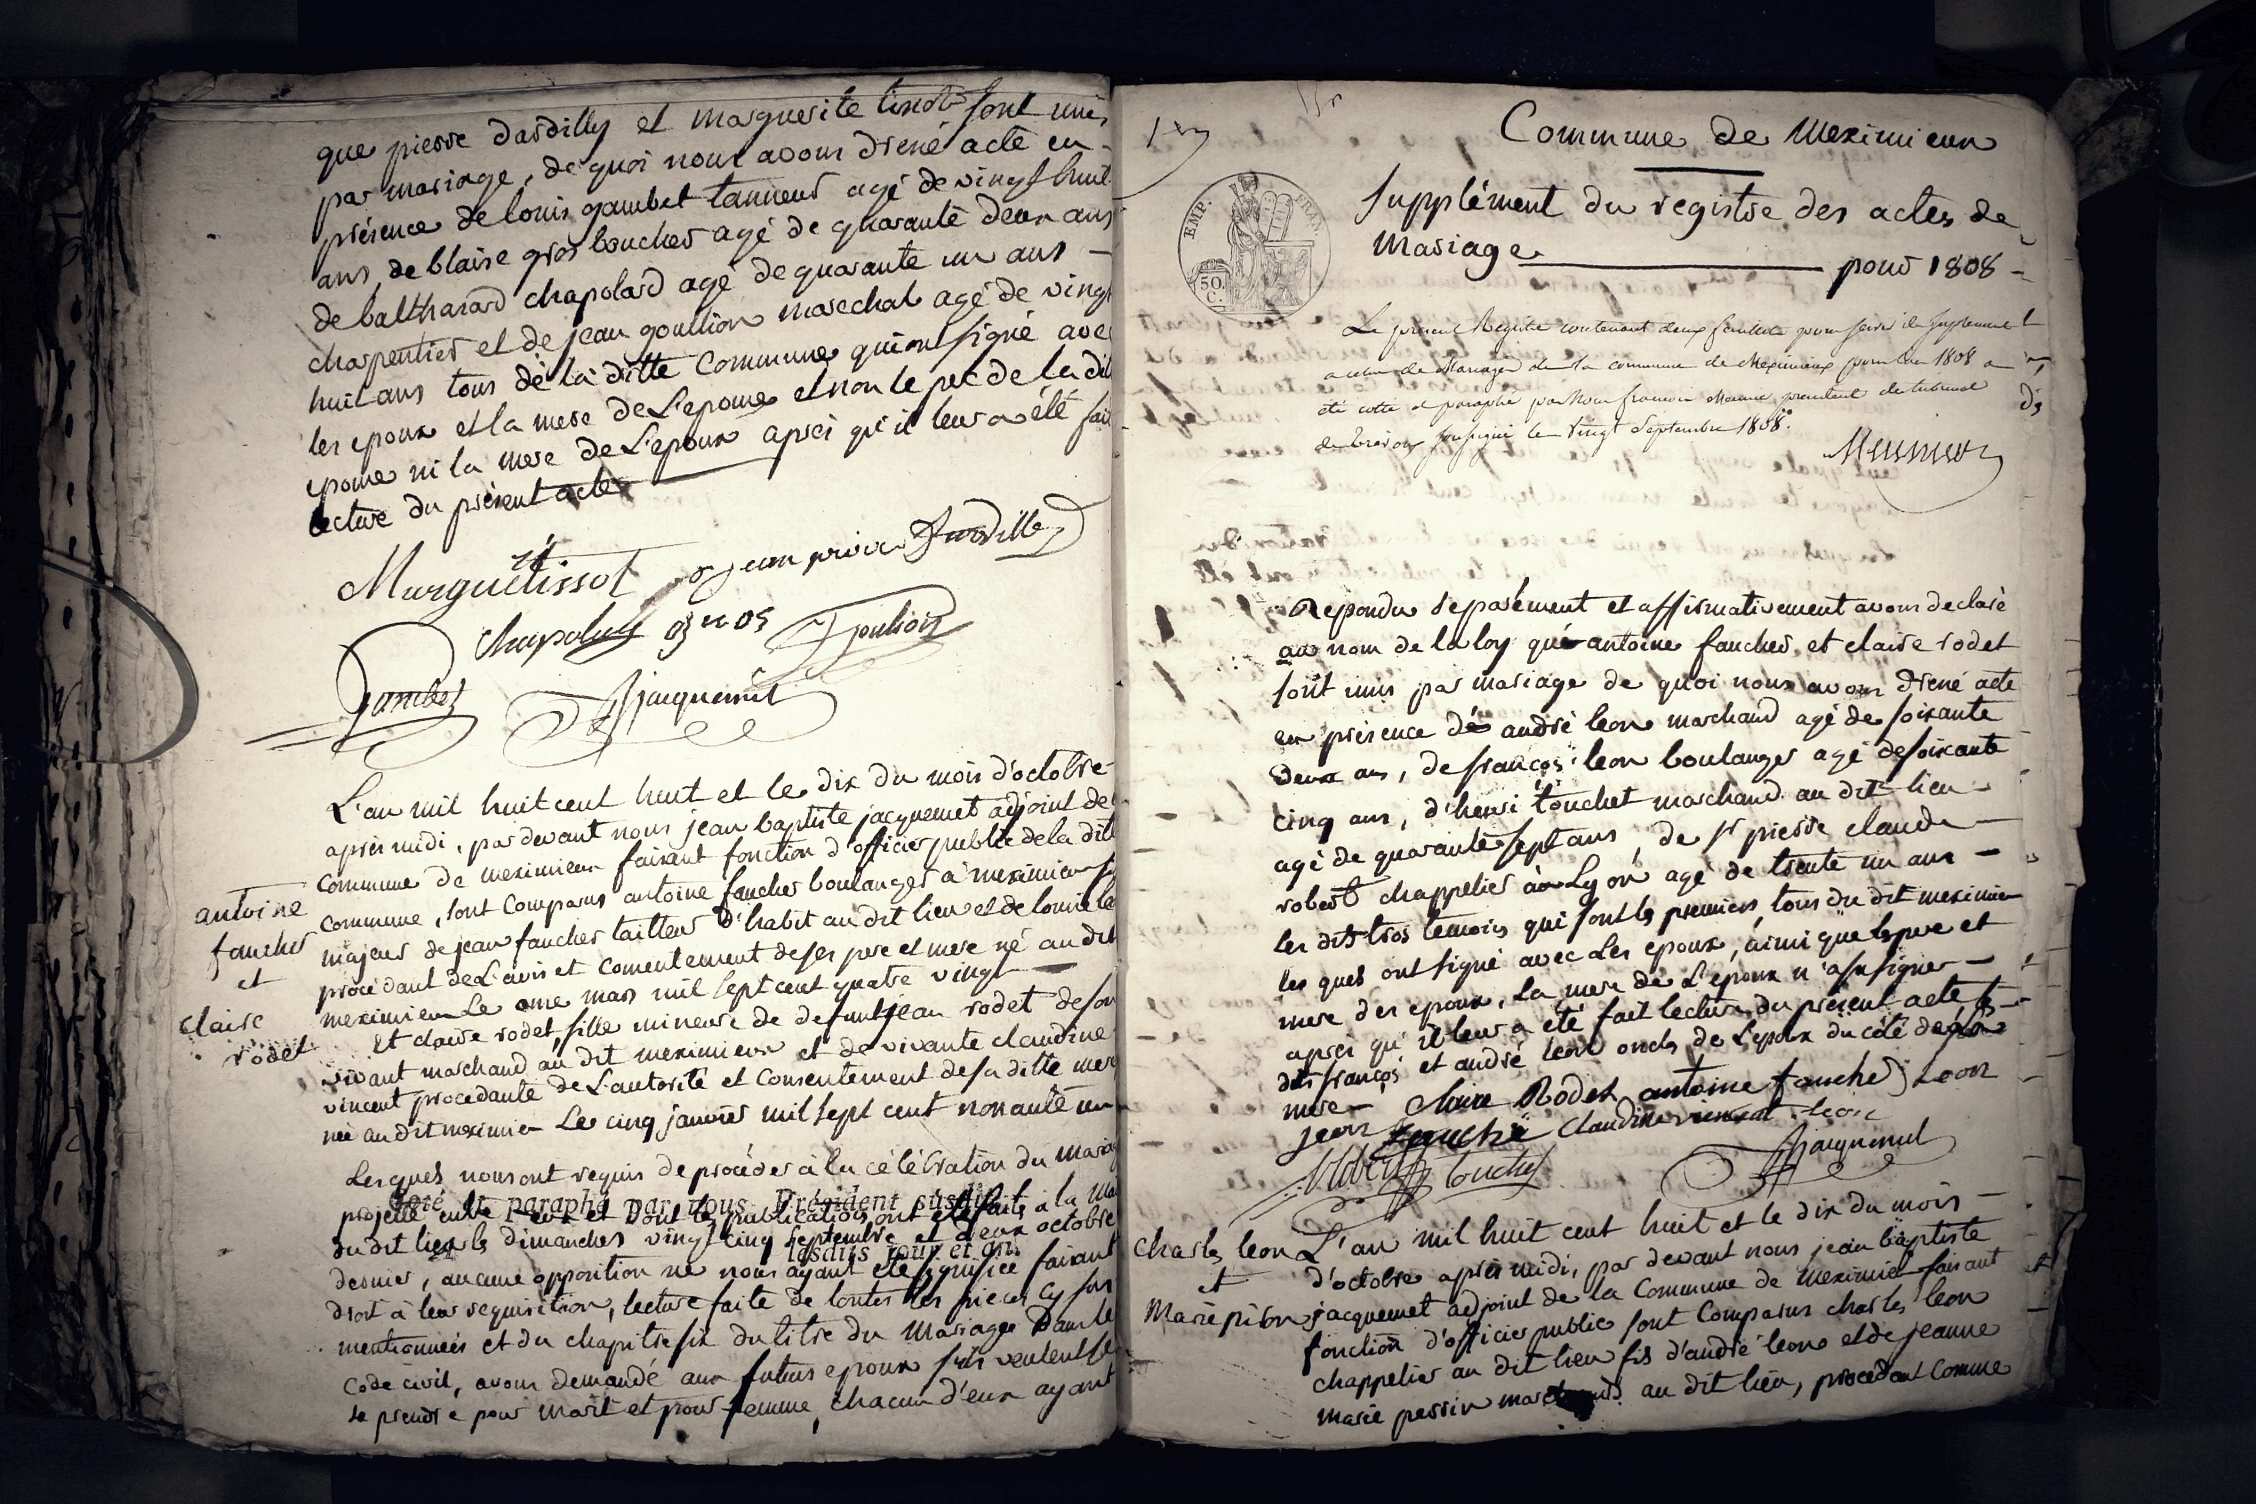 que pierre dardilly et marguerite tissot sont unis
par mariage, de quoi nous avons dressé acte en
présence de louis gambet tanneur agé de vingt huit
ans, de blaise gros boucher agé de quarante deux ans
de balthazard chapolard agé de quarante un ans
charpentier et de jean goullion marechal agé de vingt
huit ans tous de la ditte Commune qui ont signé avec
les epoux et la mere de L'epouse et non le pere de la dit
epouse ni la mere de L'epoux après qu'il leur a été fait
lecture du présent acte
Marguetissot jean pierre Dardilly
Chapolard gros Goulion
Gambet Jjacquemet
L'an mil huit cent huit et le dix du mois d'octobre
après midi, par devant nous jean baptiste jacquemet adjoint de
commune de meximieux faisant fonction d'officier public de la dite
commune, sont Comparus antoine faucher boulanger à meximieux
majeur de jean faucher tailleur d'habit au dit lieu et de louise le
procédant de L'avis et consentement de ses pere et mere né au dit
meximieux Le onze mars mil sept cent quatre vingt
et claire rodet, fille mineure de defunt jean rodet de son
vivant marchand au dit meximieux et de vivante claudine
vincent procedante de L'autorité et consentement de sa ditte mere
née au dit meximieux Le cinq janvier mil sept cent nonante un
antoine
faucher
et
claire
rodet
Lesquels nous ont requis de procéder à la célébration du mariage
projetté entre eux et dont les publications ont été faits à la
Coté et paraphé par nous Président susdit
du dit lieu les dimanches vingt cinq septembre et deux octobre
lesdits jour et an.
dernier, aucune opposition ne nous ayant été signifiée faisant
droit à leur requisition, lecture faite de toutes les pieces cy sus
mentionnées et du chapitre six du titre du Mariage dans le
Code civil, avons demandé aux futurs epoux s'ils veulent se
se prendre pour mari et pour femme, chacun d'eux ayant
1er
Commune de Meximieux
Supplément du registre des actes de
Mariage pour 1808
EMP. FRAN.
50.
C.
Le présent Registre contenant deux feuillets pour servir de Supplement
actes de Mariages de la commune de Meximieux pour l'an 1808 a
été cotté et paraphé par Nous françois président du tribunal
de Trévoux soussigné le vingt Septembre 1808.
Repondu séparément et affirmativement avons declaré
au nom de la loy que antoine faucher et claire rodet
sont unis par mariage de quoi nous avons dressé acte
en présence de andré leon marchand agé de soixante
deux ans, de françois leon boulanger agé de soixante
cinq ans, d'henri touchet marchand au dit lieu
agé de quarante sept ans, de sr pierre claude
robert chappelier à Lyon agé de trente un ans
les dits trois temoins qui sont les premiers, tous du dit meximieux
les quels ont signé avec Les epoux, ainsi que le pere et
mere des epoux, la mere de L'epoux n'a su signer
après qu'il leur a été fait lecture du présent acte
dits françois et andré leon oncles de L'epoux du côté de sa
mere Claire Rodet antoine faucher Leon
jean fauché Claudine vincent leon
Robert Touchet Jjacquemet
Charles leon
et
Marie
L'an mil huit cent huit et le dix du mois
d'octobre après midi, par devant nous jean baptiste
jacquemet adjoint de la Commune de meximieux faisant
fonction d'officier public sont Comparus charles leon
chappelier au dit lieu fils d'andré leon et de jeanne
marie perrin marchands au dit lieu, procedant comme